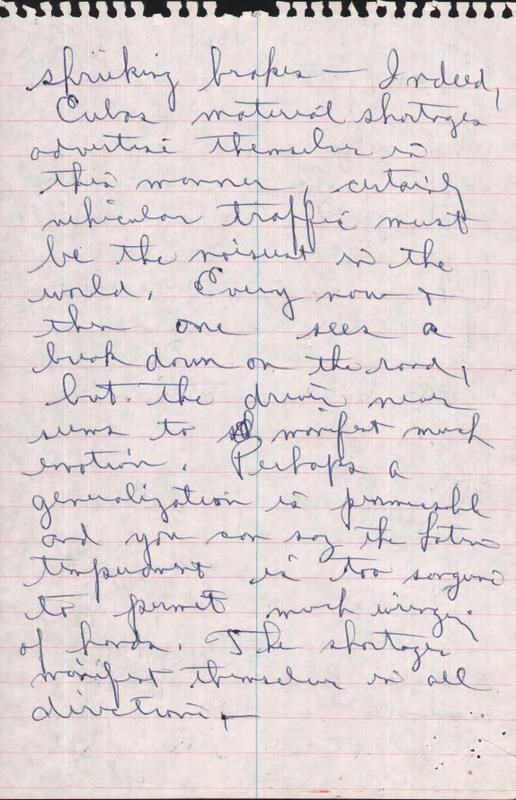 shrieking brakes — Indeed,
Cubas material shortages
advertise themselves in
this manner, certainly
vehicular traffic must
be the noisiest in the
world. Every now +
then one sees a
break down on the road,
but the driver never
seems to manifest much
emotion. Perhaps a
generalization is permissible
and you can say the Latin
temperament is too sanguine
to permit much wringing
of hands. The shortages
manifest themselves in all
directions —